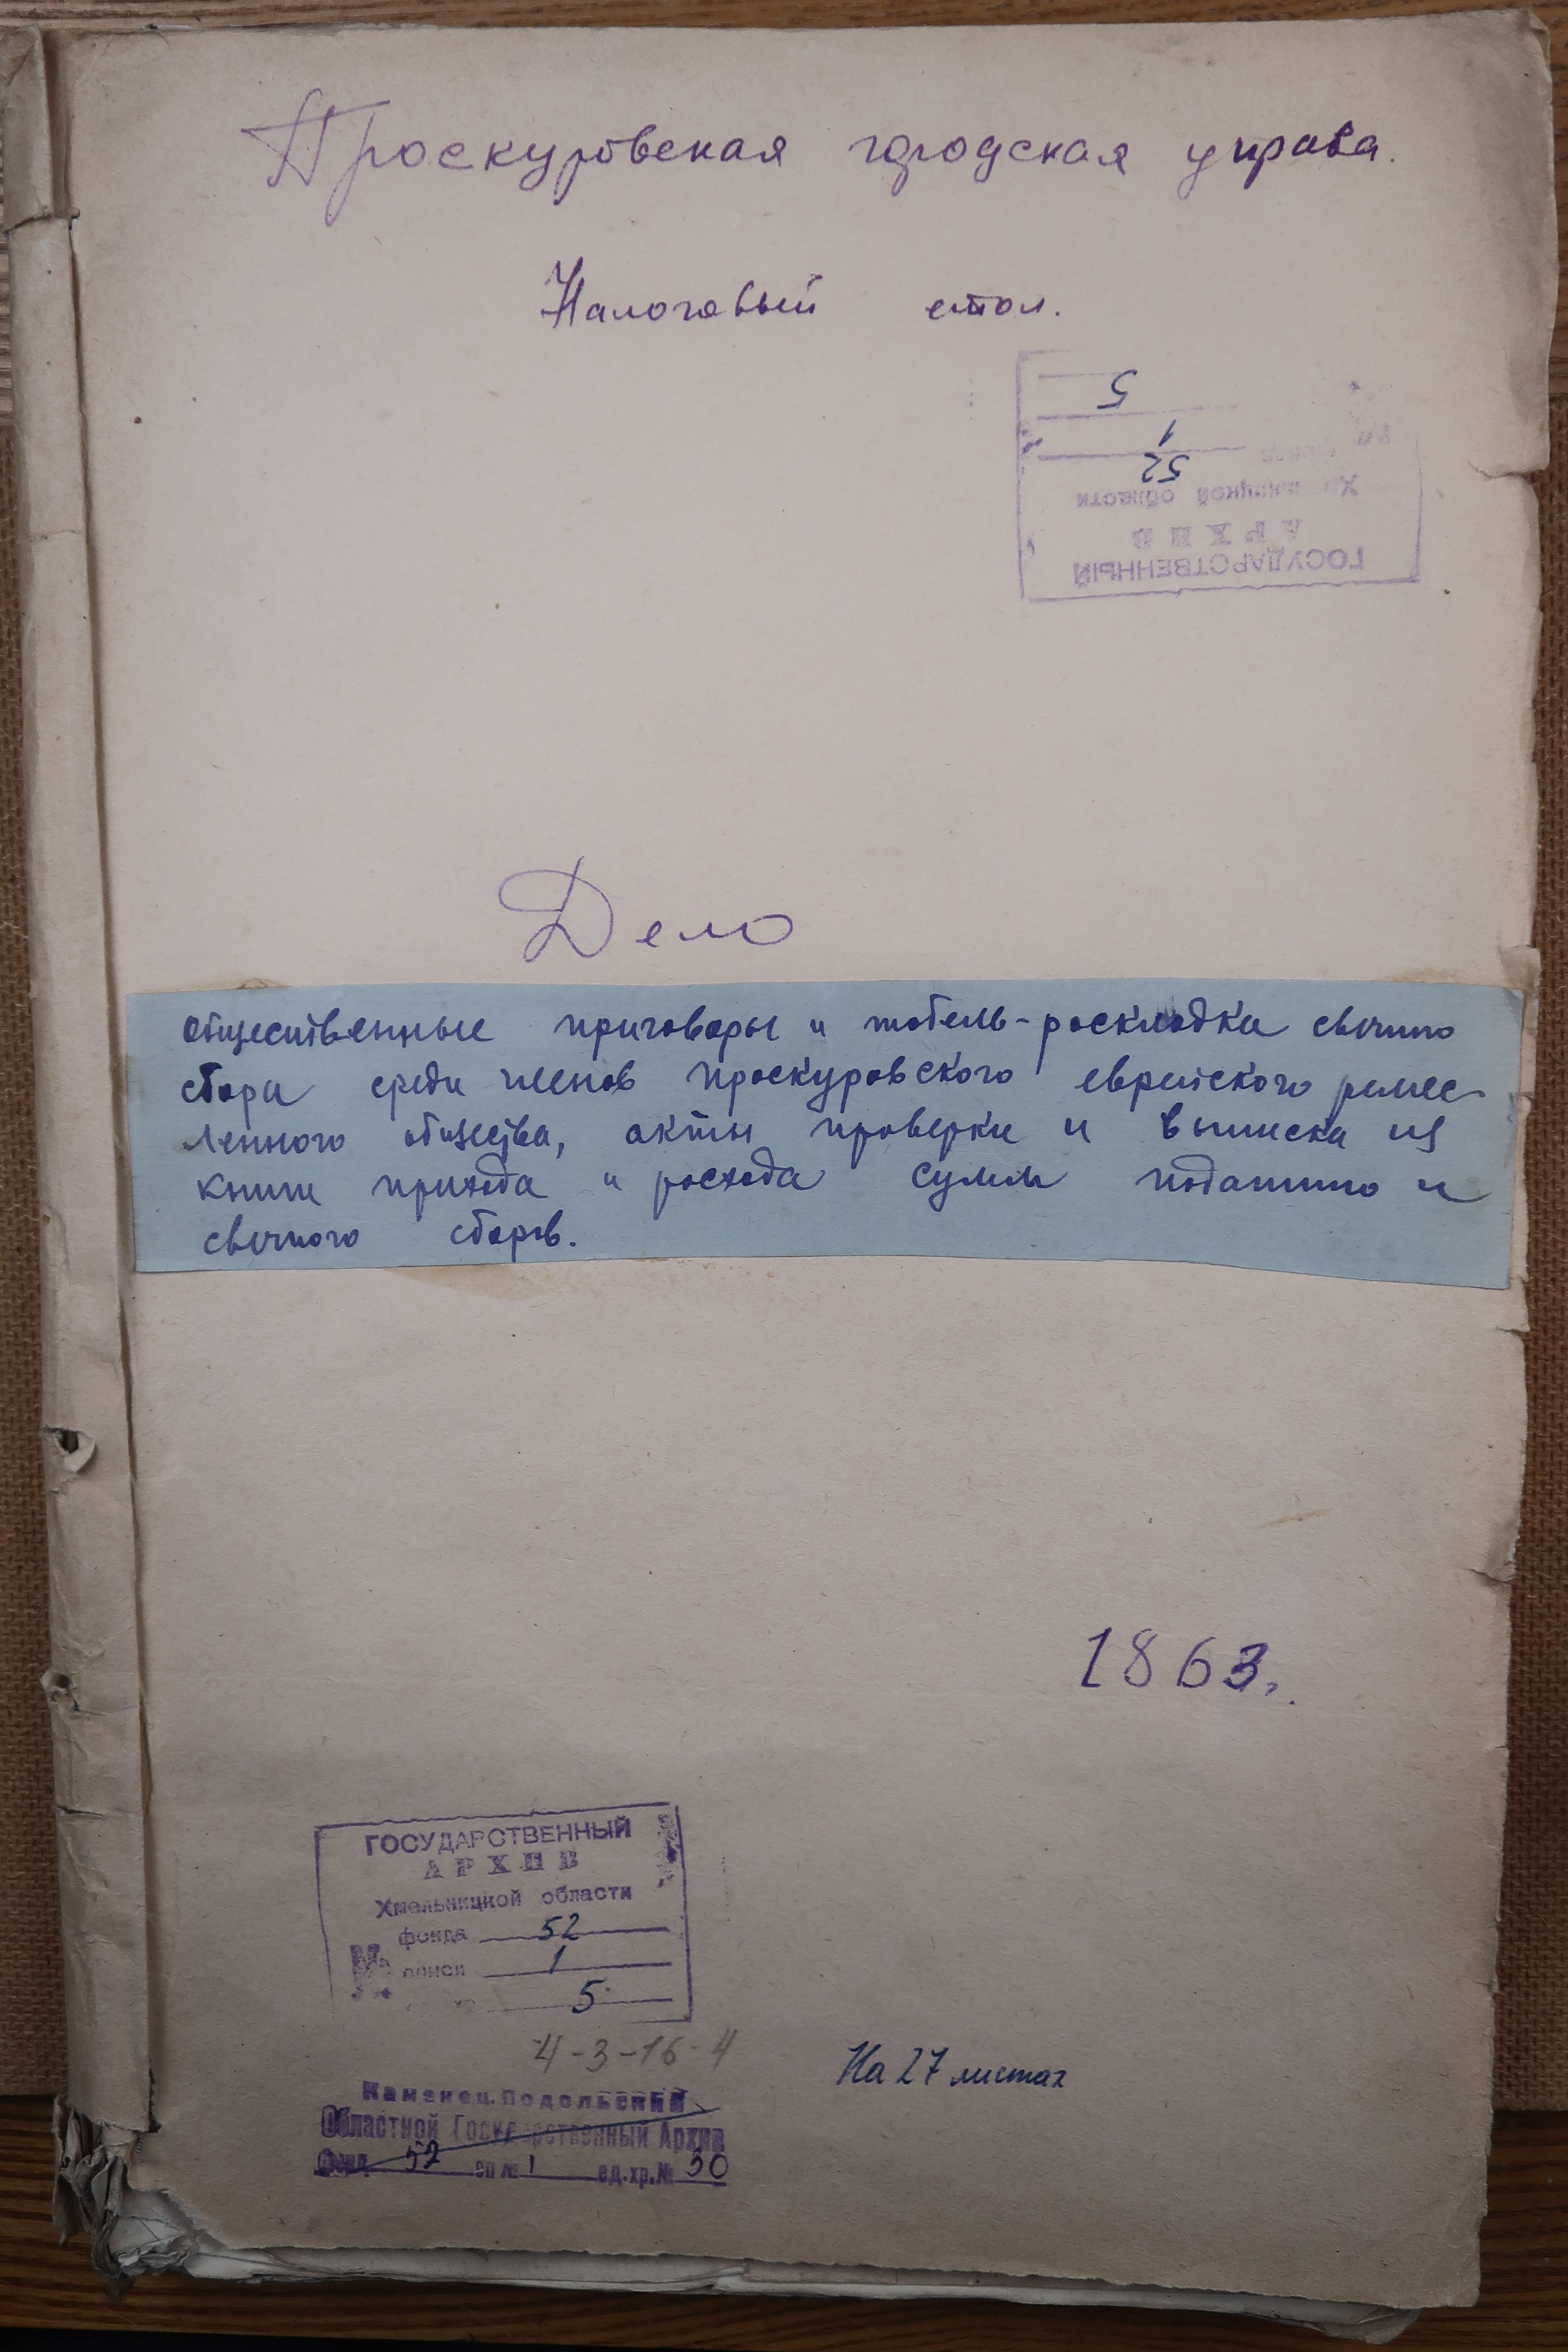 Проскуровская городская управа.
Налоговый стол.
5
1
52
Хмельницкой области
АРХИВ
ГОСУДАРСТВЕННЫЙ
Дело
общественные приговоры и табель-раскладка свечного
сбора среди членов Проскуровского еврейского ремес-
ленного общества, акты проверки и выписка из
книги прихода и расхода сумм податного и
свечного сборов.
1863.
ГОСУДАРСТВЕННЫЙ
АРХИВ
Хмельницкой области
фонда 52
№ описи 1
5
4-3-16-4
На 27 листах
Каменец.Подольский
Областной Государственный Архив
Фонд 52 оп № 1 ед.хр.№ 30